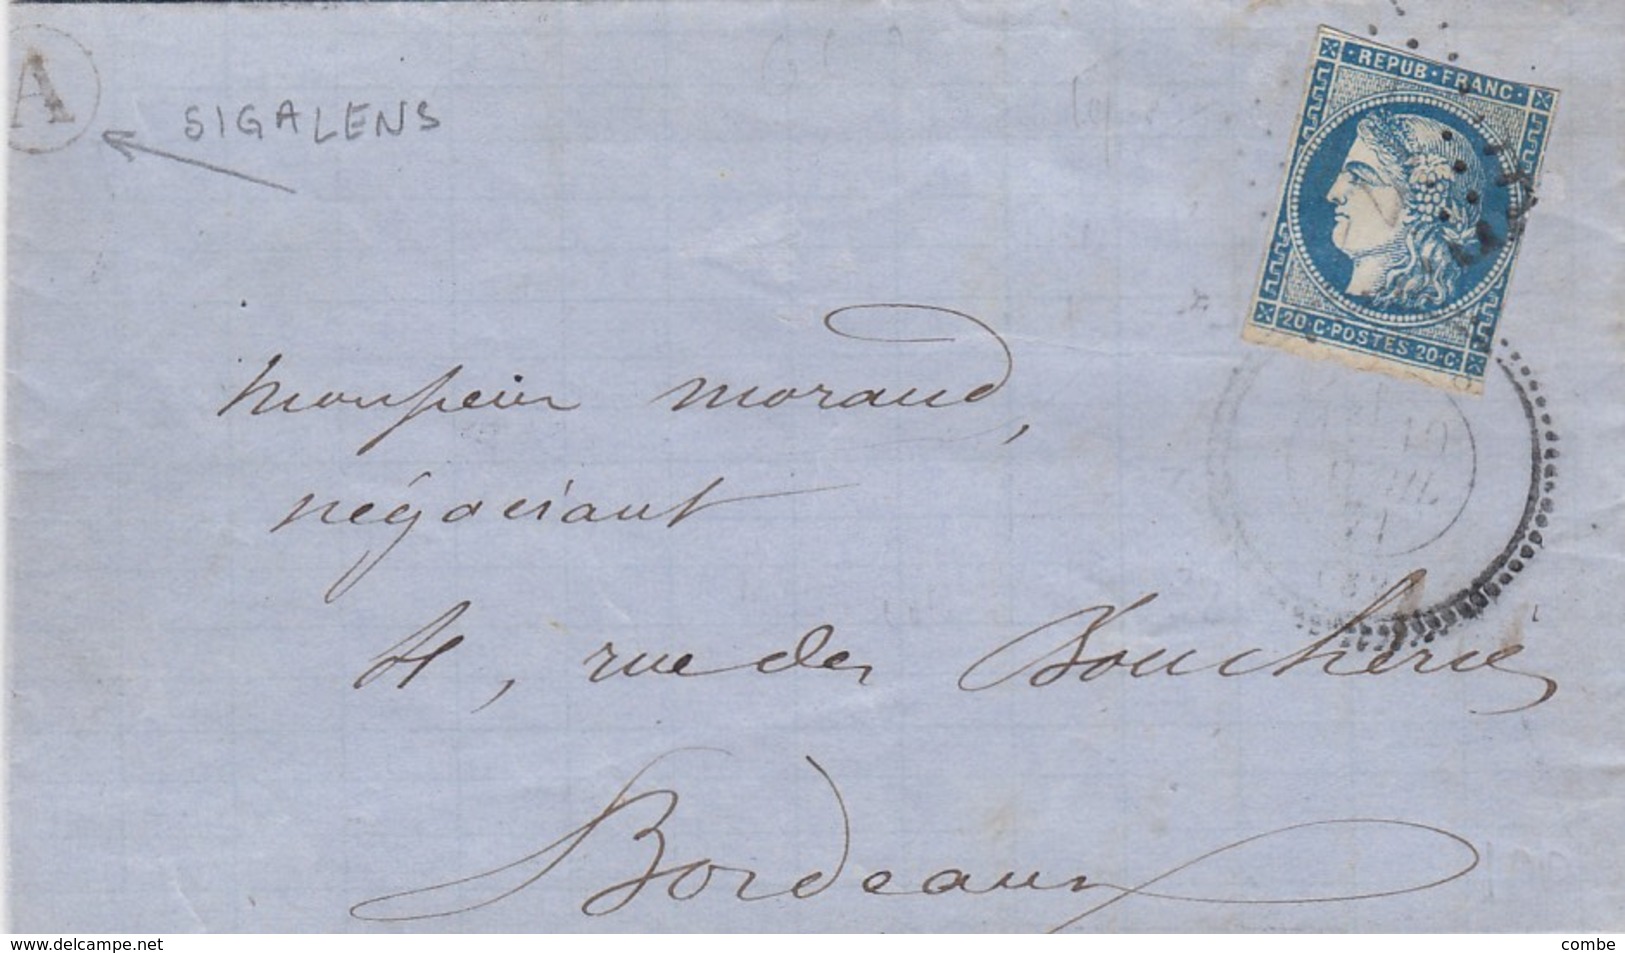 A
SIGALENS
· REPUB · FRANC ·
20 · C · POSTES 20 · C ·
Monsieur Morand,
négociant
4, rue des Boucheries
Bordeaux
71
www.delcampe.net
combe